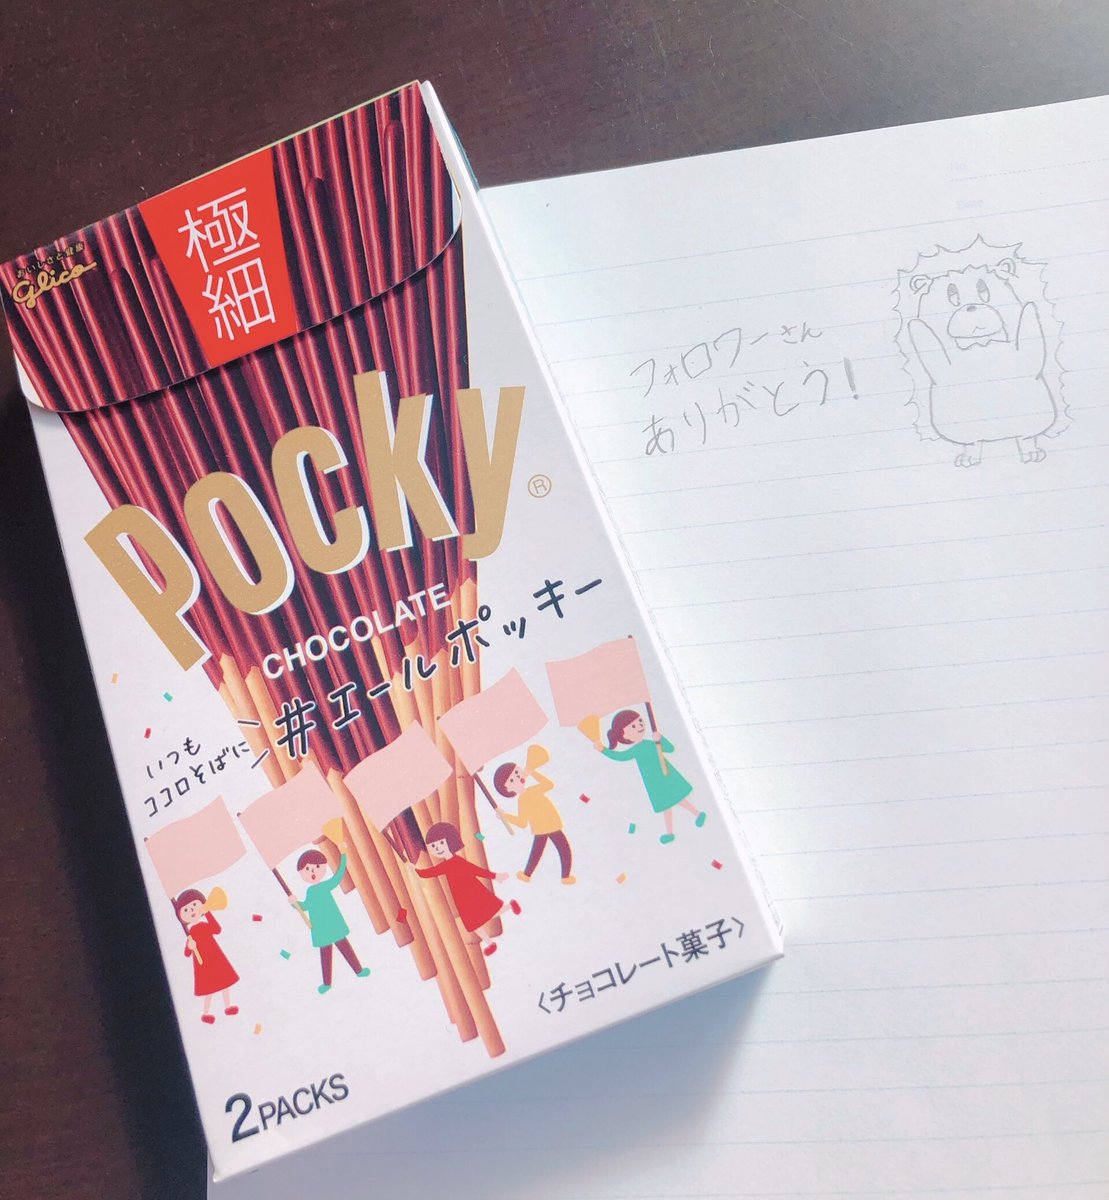 極細
おいしさと健康
glico
Pocky®
CHOCOLATE
いつも
ココロそばに
#エールポッキー
〈チョコレート菓子〉
2PACKS
No.
Date
フォロワーさん
ありがとう!